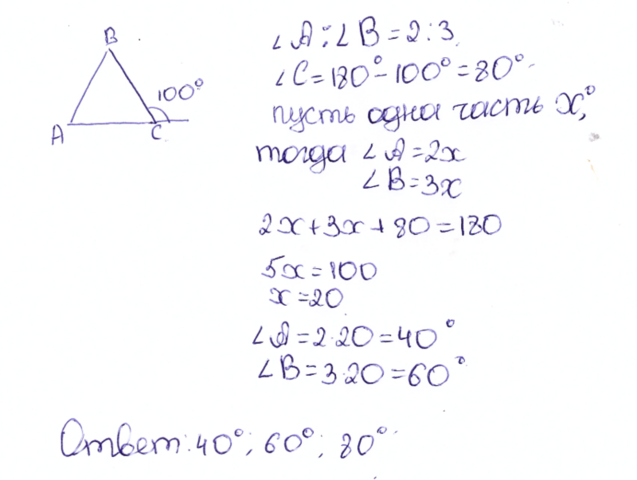 B
100°
A
C
∠A:∠B=2:3
∠C=180°-100°=80°
пусть одна часть x°,
тогда ∠A=2x
∠B=3x
2x+3x+80=180
5x=100
x=20
∠A=2·20=40°
∠B=3·20=60°
Ответ: 40°; 60°; 80°